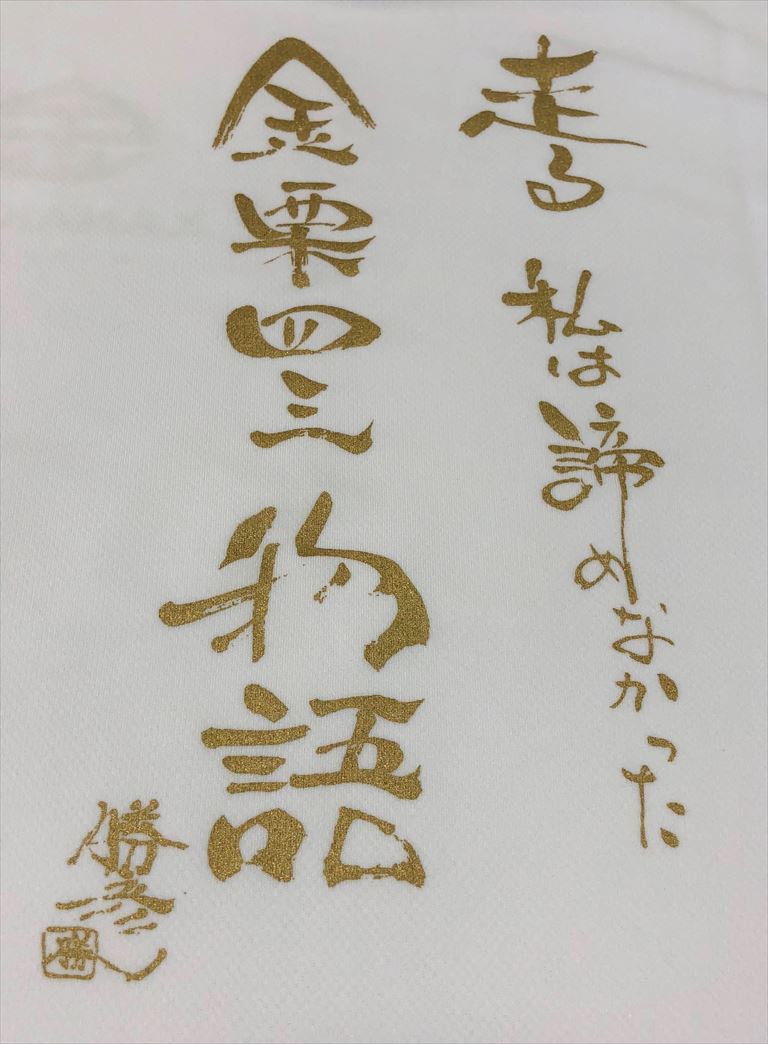 走る 私は諦めなかった
金栗四三物語
勝彦